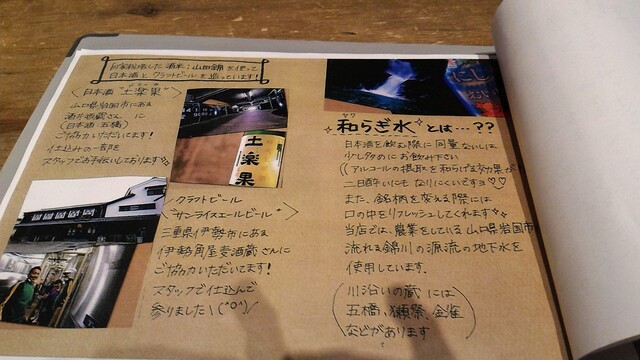 自家栽培した酒米:山田錦を使って
日本酒とクラフトビールを造っています!
〈日本酒 "土楽果" 〉
山口県岩国市にある
酒井酒蔵さんに
(日本酒 五橋)
ご協力いただいてます!
仕込みの一部を
スタッフでお手伝いしております
土
楽
果
〈クラフトビール
"サンライズエールビール" 〉
三重県伊勢市にある
伊勢角屋麦酒蔵さんに
ご協力いただいてます!
スタッフで仕込んで
参りました\(^O^)/
和らぎ水とは…??
日本酒を飲む際に同量ないしは
少し多めにお飲み下さい
((アルコールの摂取を和らげる効果が
二日酔いにもなりにくいですヨ♡♡
また、銘柄を変える際には
口の中をリフレッシュしてくれます
当店では、農業をしている山口県岩国市
流れる錦川の源流の地下水を
使用しています。
(川沿いの蔵には
五橋、獺祭、金雀
などがあります)